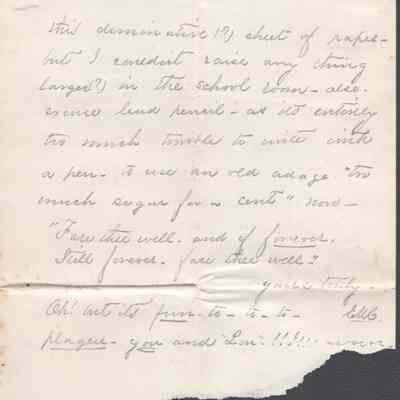 this diminutive (?) sheet of paper -
but I couldn't raise any thing
larger (?) in the school room - also -
excuse lead pencil - as its entirely
too much trouble to write with
a pen - to use an old adage "too
much sugar for a cent" now -
"Fare thee well. and if forever.
Still forever - fare thee well."
yours truly -
Oh! but its fun - to - to - to -
plague - you and "Lou" !!!!!!